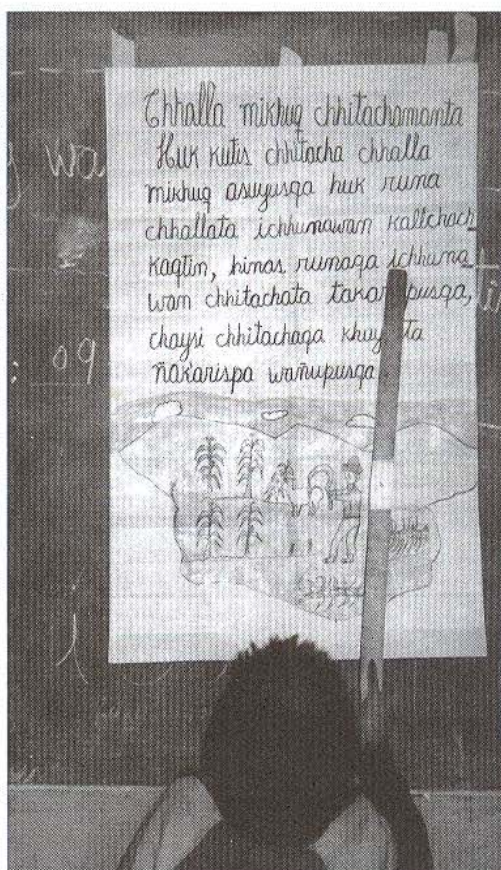 Chhalla mikhuq chhitachamanta
Huk kutis chhitacha chhalla
mikhuq asuyusqa huk runa
chhallata ichhunawan kallchach
kaqtin, hinas runaqa ichhuna
wan chhitachata pusqa,
chaysi chhitachaqa
ñakarispa wañupusqa
wa
: 09